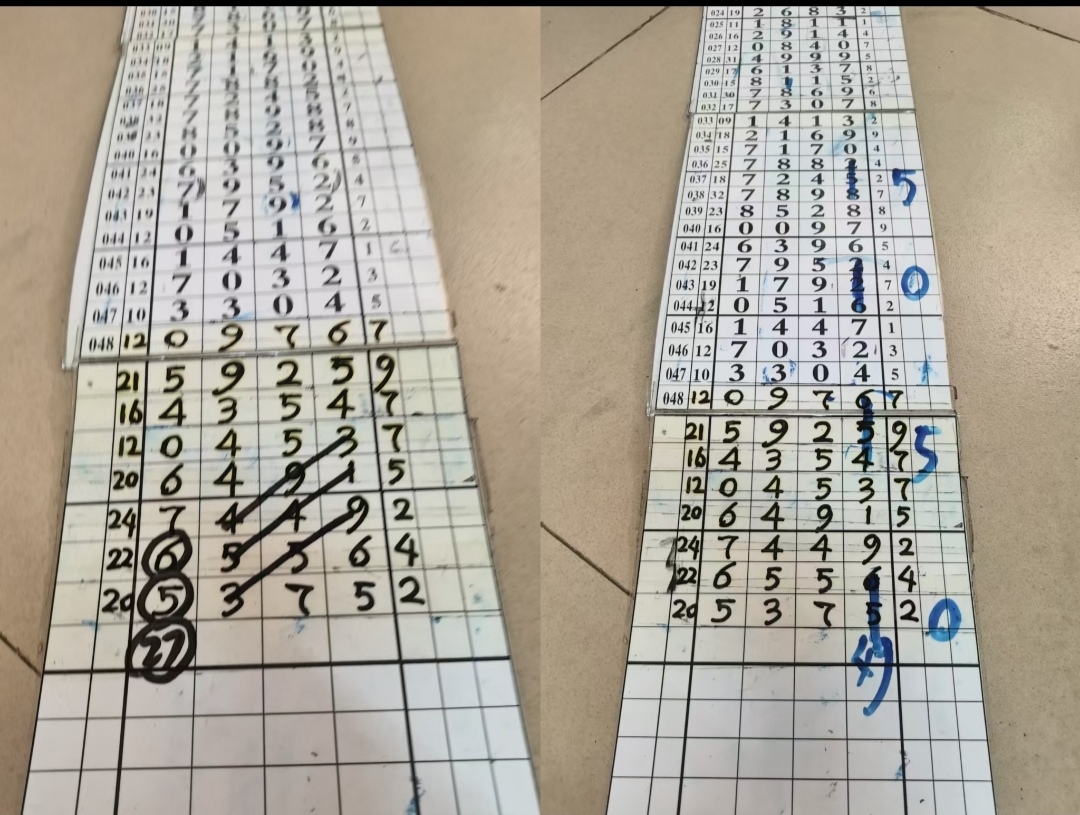 041 24 6 3 9 6 8
042 23 7 9 5 2 4
043 19 1 7 9 2 7
044 12 0 5 1 6 2
045 16 1 4 4 7 1
046 12 7 0 3 2 3
047 10 3 3 0 4 5
048 12 0 9 7 6 7
21 5 9 2 5 9
16 4 3 5 4 7
12 0 4 5 3 7
20 6 4 9 1 5
24 7 4 4 9 2
22 6 5 5 6 4
20 5 3 7 5 2
27
024 19 2 6 8 3 2
025 11 1 8 1 1 1
026 16 2 9 1 4 4
027 12 0 8 4 0 7
028 31 4 9 9 9 5
029 17 6 1 3 7 8
030 15 8 1 1 5 2
031 30 7 8 6 9 6
032 17 7 3 0 7 8
033 09 1 4 1 3 2
034 18 2 1 6 9 9
035 15 7 1 7 0 4
036 25 7 8 8 2 4
037 18 7 2 4 5 2 5
038 32 7 8 9 8 7
039 23 8 5 2 8 8
040 16 0 0 9 7 9
041 24 6 3 9 6 5
042 23 7 9 5 2 4
043 19 1 7 9 2 7 0
044 12 0 5 1 6 2
045 16 1 4 4 7 1
046 12 7 0 3 2 3
047 10 3 3 0 4 5
048 12 0 9 7 6 7
21 5 9 2 5 9 5
16 4 3 5 4 7
12 0 4 5 3 7
20 6 4 9 1 5
24 7 4 4 9 2
22 6 5 5 6 4
20 5 3 7 5 2 0